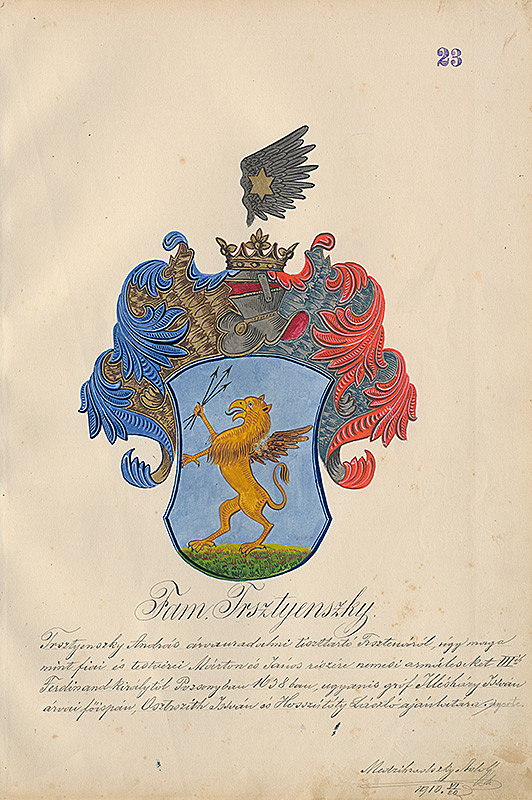 23
Fam. Trsztyenszky.
Trsztyenszky András árvauradalmi tiszttartó Trsztenáról, úgy maga
mint fiai és testvérei Márton és János részére nemesi armálisokat III-ik
Ferdinand királytól Pozsonyban 1638 ban, ugyanis gróf Illésházy István
árvai főispán, Osztrozith István és Hosszútóty László ajánlatára
1910.